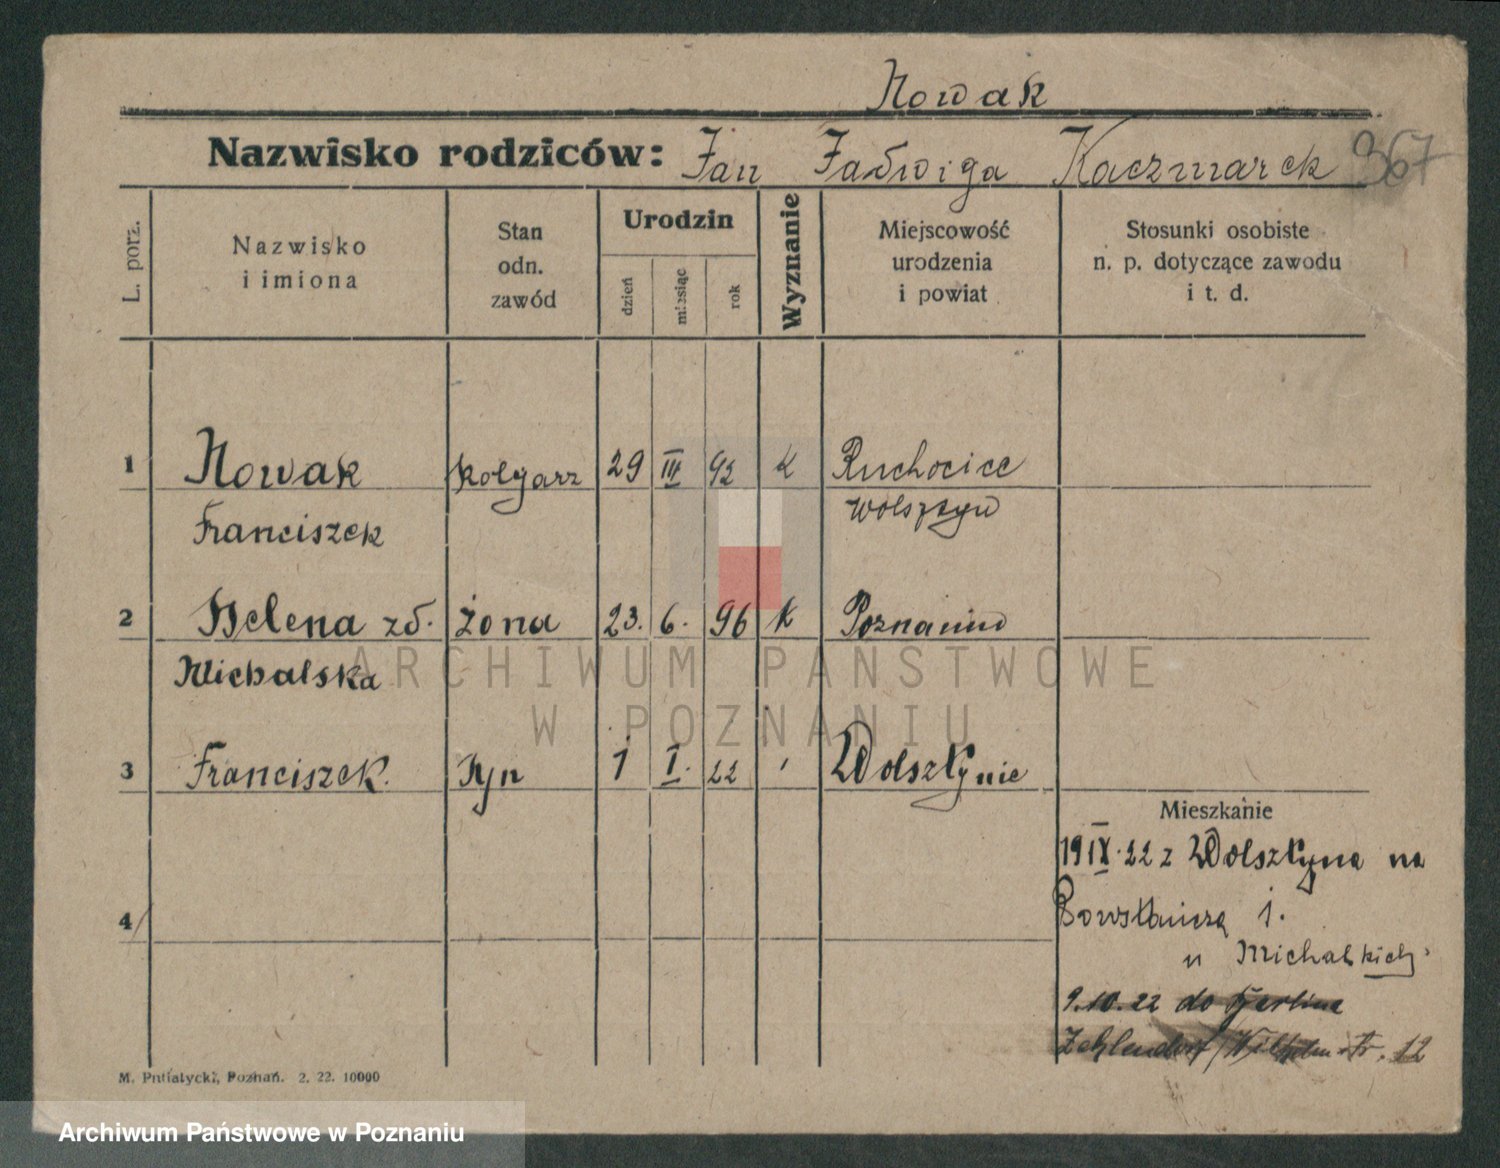 Nowak
Nazwisko rodziców: Jan Jadwiga Kaczmarek 367
L. porz.
Nazwisko
i imiona
Stan
odn.
zawód
Urodzin
dzień
miesiąc
rok
Wyznanie
Miejscowość
urodzenia
i powiat
Stosunki osobiste
n. p. dotyczące zawodu
i t. d.
1 Nowak 29 III 92 K Ruchocice
Franciszek Wolsztyn
2 Helena zd. żona 23. 6. 96 K
Michalska
3 Franciszek. syn 1 I. 22 Wolsztynie
4
Mieszkanie
19 IX. 22 z Wolsztyna na
1.
u Michalskich
9.10.22 do Berlina
Zehlendorf Wilhelmstr. 12
M. Putiatycki, Poznań. 2. 22. 10000
ARCHIWUM PAŃSTWOWE
W POZNANIU
Archiwum Państwowe w Poznaniu